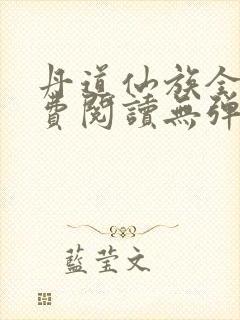 丹道仙族全
費閱讀無彈
藍莹文